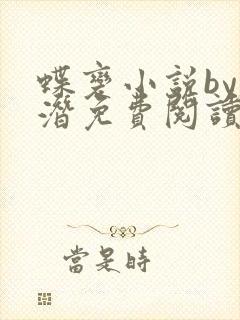 蝶变小説by
潛免費閱讀
當是時